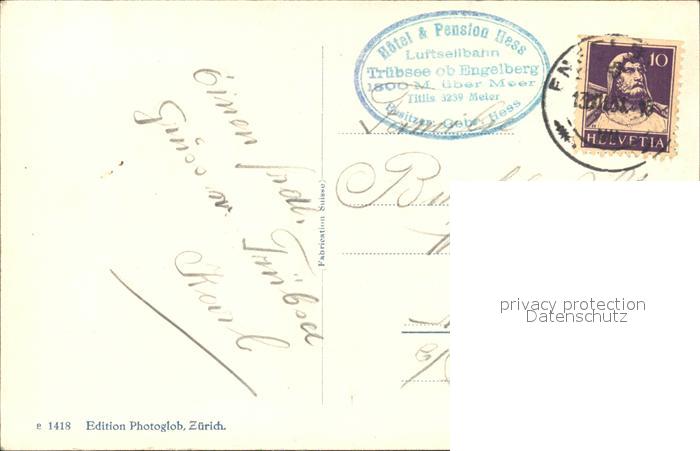 Hôtel & Pension Hess
Luftseilbahn
Trübsee ob Engelberg
1800 M. über Meer
Titlis 3239 Meter
Besitzer Gebr. Hess
10
HELVETIA
Einen frdl.
Gruss v. Trübsee
Karl
Familie
Fabrication Suisse
privacy protection
Datenschutz
e 1418 Edition Photoglob, Zürich.